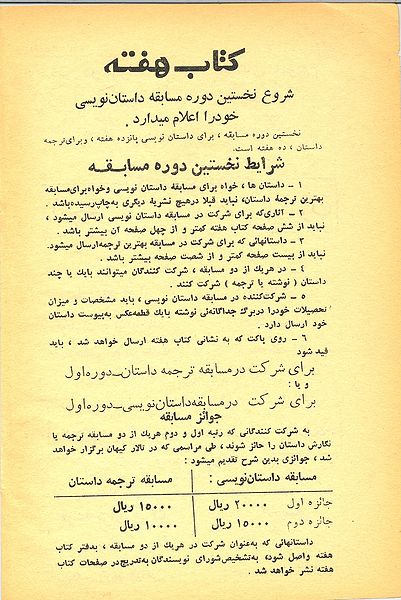 کتاب هفته
شروع نخستین دوره مسابقه داستان‌نویسی
خودرا اعلام میدارد.
نخستین دوره مسابقه، برای داستان نویسی پانزده هفته، وبرای‌ترجمه
داستان، ده هفته است.
شرایط نخستین دوره مسابقه
۱ – داستان ها، خواه برای مسابقه داستان نویسی وخواه‌برای‌مسابقه
بهترین ترجمهٔ داستان، نباید قبلا درهیچ نشریهٔ دیگری به‌چاپ‌رسیده‌باشد.
۲ – آثاری‌که برای شرکت در مسابقه داستان نویسی ارسال میشود،
نباید از شش صفحه کتاب هفته کمتر و از چهل صفحه آن بیشتر باشد.
۳ – داستانهائی که برای شرکت در مسابقه بهترین ترجمه‌ارسال میشود.
نباید از بیست صفحه کمتر و از شصت صفحه بیشتر باشد.
۴ – در هریك از دو مسابقه، شرکت کنندگان میتوانند بایك یا چند
داستان (نوشته یا ترجمه) شرکت کنند.
۵ – شرکت‌کننده در مسابقه داستان نویسی، باید مشخصات و میزان
تحصیلات خودرا دربرگ جداگانه‌ئی نوشته بایك قطعه‌عکس به‌پیوست داستان
خود ارسال دارد.
۶ – روی پاکت که به نشانی کتاب هفته ارسال خواهد شد، باید
قید شود
برای شرکت در مسابقه ترجمه داستان–دوره‌اول
و یا:
برای شرکت در مسابقه‌داستان‌نویسی–دوره‌اول
جوائز مسابقه
به شرکت کنندگانی که رتبه اول و دوم هریك از دو مسابقه ترجمه یا
نگارش داستان را حائز شوند، طی مراسمی که در تالار کیهان برگزار خواهد
شد، جوائزی بدین شرح تقدیم میشود:
مسابقه داستان‌نویسی: مسابقه ترجمه داستان
جائزه اول ۲۰۰۰۰ ریال ۱۵۰۰۰ ریال
جائزه دوم ۱۵۰۰۰ ریال ۱۰۰۰۰ ریال
داستانهائی که به‌عنوان شرکت در هریك از دو مسابقه، بدفتر کتاب
هفته واصل شود، به‌تشخیص‌شورای نویسندگان به‌تدریج‌در صفحات کتاب
هفته نشر خواهد شد.